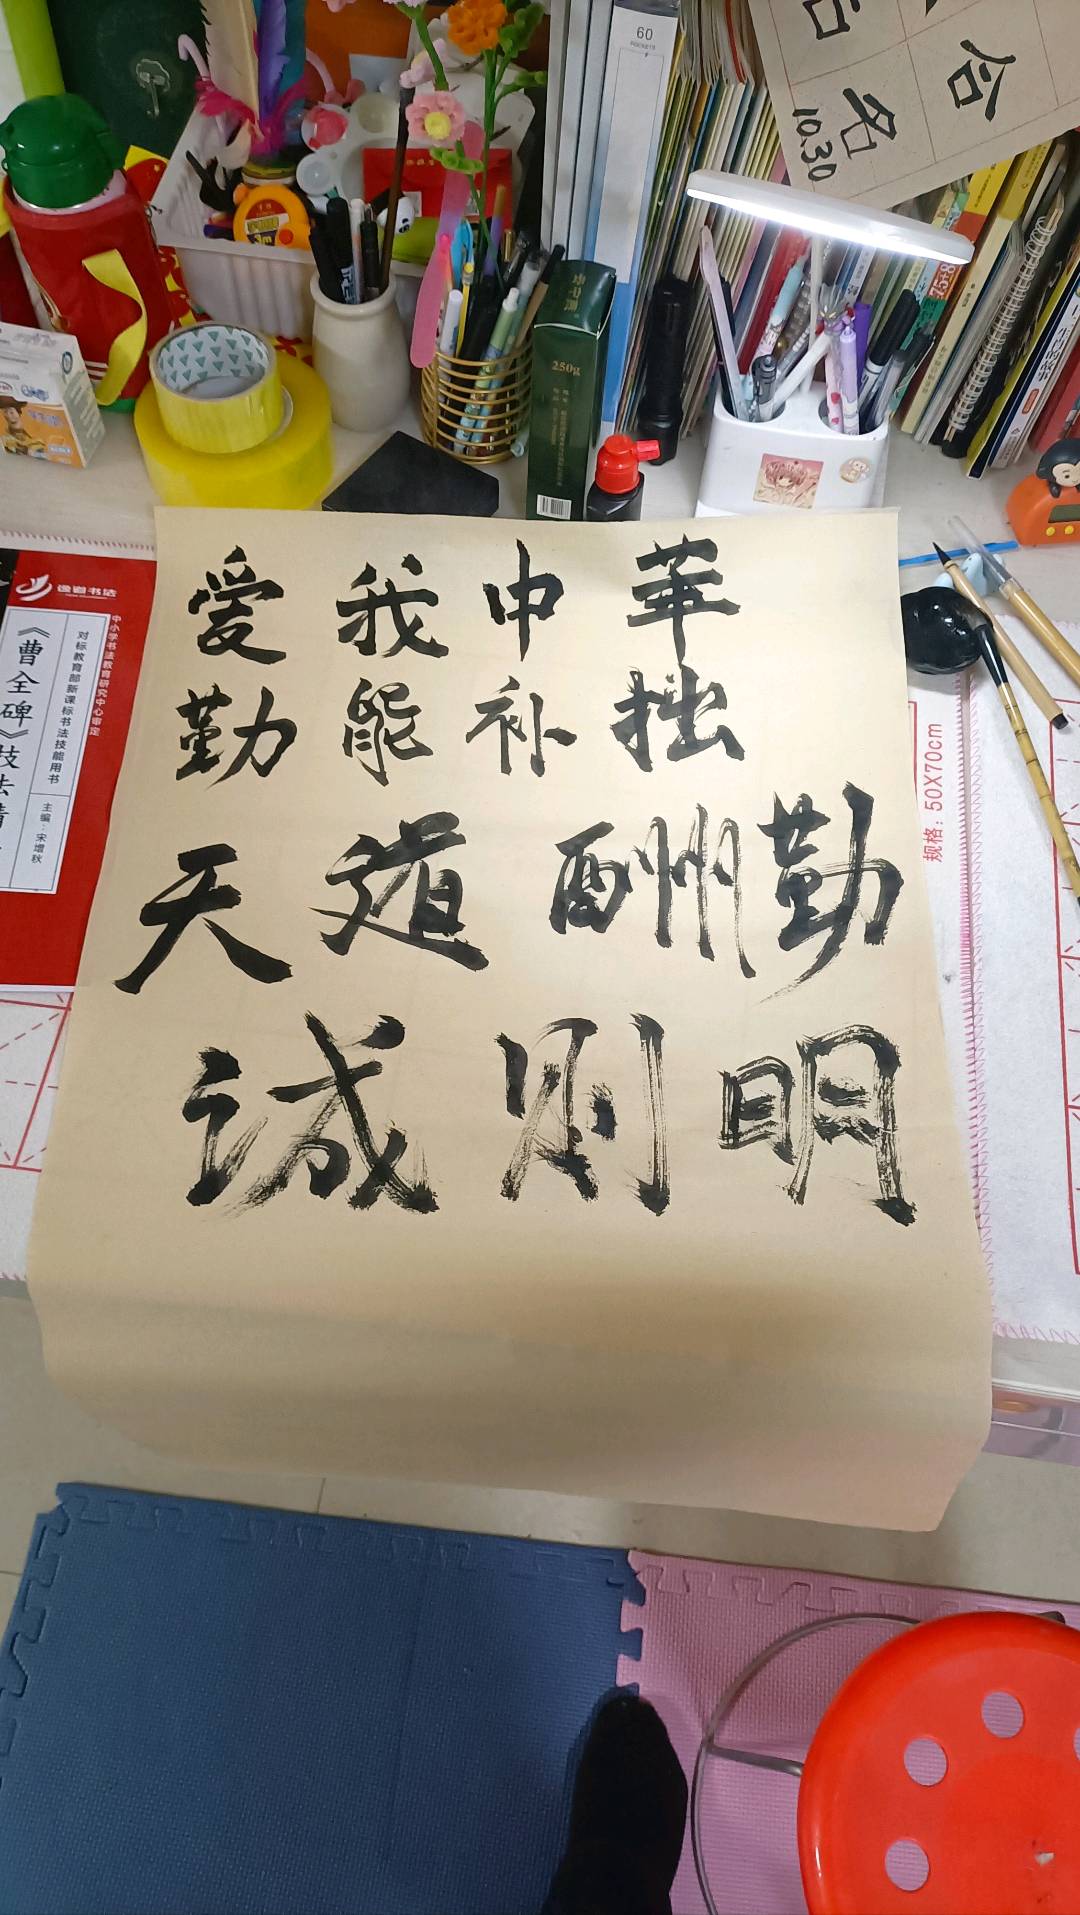 60
POCKETS
合
名
10.30
250g
逸道书法
中小学书法教育研究中心审定
对标教育部新课标书法技能用书
《曹全碑》技法精
主编·宋增秋
规格：50X70cm
爱我中华
勤能补拙
天道酬勤
诚则明